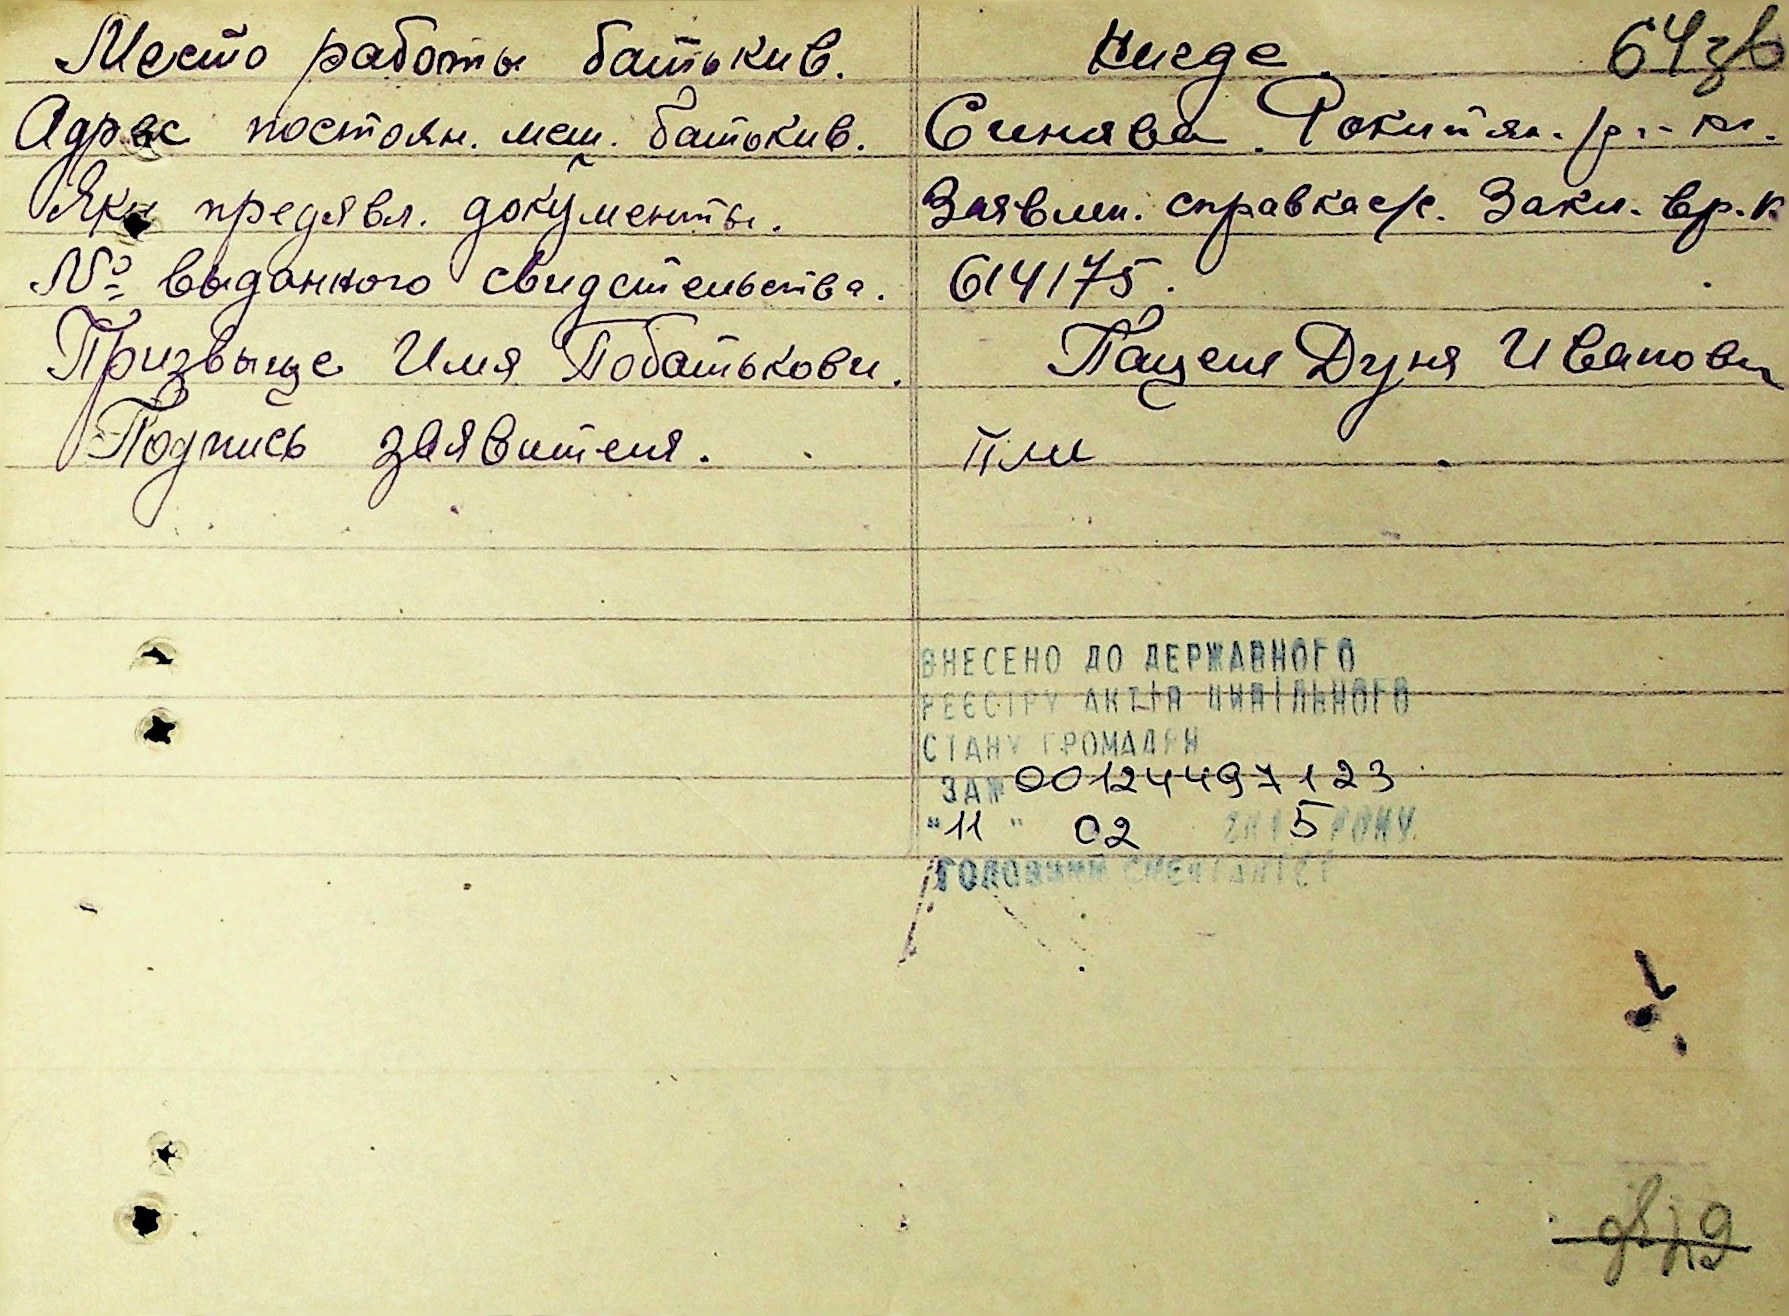 Место работы батькив. Нигде. 64зв
Адрес постоян. меш. батькив. Синява. Рокитян. р-н.
Яки предявл. документы. Заявлен. справка с/с. Закл. вр. к
№ выданного свидетельства. 614175.
Призвыще Имя Побатькови. Пацеля Дуня Иванови
Подпись заявителя.
ВНЕСЕНО ДО ДЕРЖАВНОГО
РЕЄСТРУ АКТІВ ЦИВІЛЬНОГО
СТАНУ ГРОМАДЯН
ЗА № 00124497123
"11" 02 5 РОКУ
ГОЛОВНИЙ СПЕЦІАЛІСТ